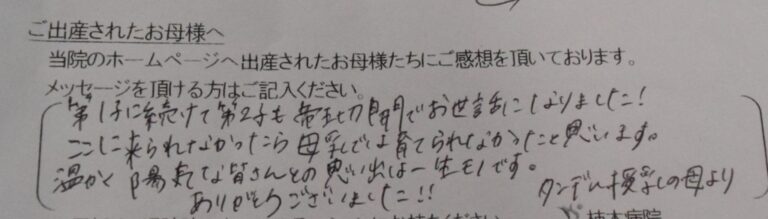 ご出産されたお母様へ
当院のホームページへ出産されたお母様たちにご感想を頂いております。
メッセージを頂ける方はご記入ください。
第1子に続けて第2子も帝王切開でお世話になりました!
ここに来られなかったら母乳では育てられなかったと思います。
温かく陽気な皆さんとの思い出は一生モノです。
ありがとうございました!!
タンデム授乳の母より
柿本病院